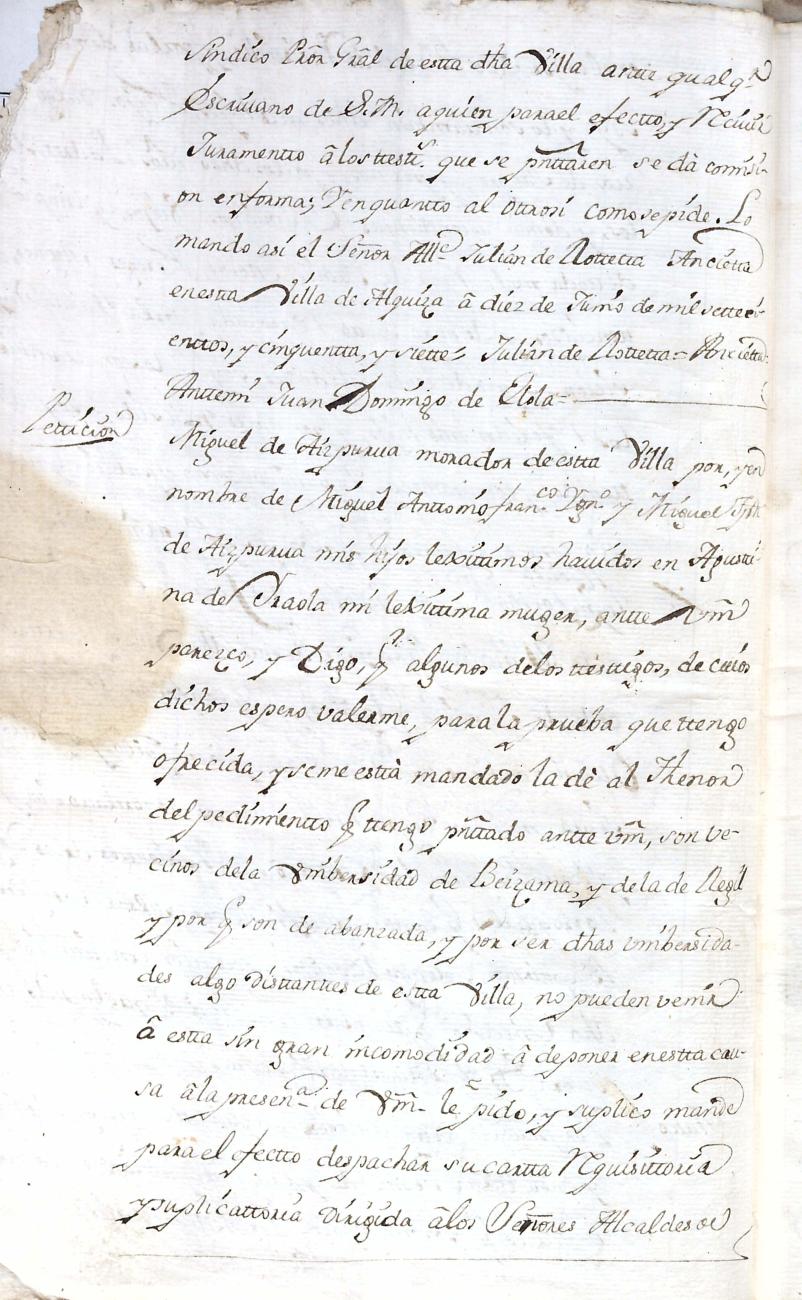 Sindico Prõr Grãl de estta dha Villa antte qualqr
Escrivano de S.M. a quien para el efectto, y Recivir
Juramentto â los testigs. que se pnttaren se dà comisi-
on en forma; Y en quantto al Ottrosi como se pide. Lo
mando asi el Señor Alle Julian de Rottetta Ancietta
en estta Villa de Alquiza â diez de Junio de mil settezi-
enttos, y cinquentta, y siette = Julian de Rottetta = Anxietta
Anttemi Juan Domingo de Elola =
Petticion
Miguel de Aizpurua morador de estta Villa por, y en
nombre de Miguel Anttonio franco. Ygno y Miguel
de Aizpurua mis hijos lexittimos havidos en Agusti-
na de Yraola mi lexittima muger, antte Vm̃
parezco, y Digo, q̃ algunos de los ttesttigos, de cuios
dichos espero valerme, para la prueba que ttengo
ofrecida, y se me esttà mandado la dè al Thenor
del pedimientto q̃ ttengo pñttado antte vm̃, son ve-
cinos de la Vnibersidad de Beizama, y de la de Regil
y por q̃ son de abanzada, y por ser dhas vnibersida-
des algo disttanttes de estta Villa, no pueden venir
â estta sin gran incomodidad â deponer en estta cau-
sa â la presena. de Vm̃ le pido, y suplico mande
para el efectto despachar su cartta Rquisittoria
y suplicattoria dirigida â los Señores Alcaldes de